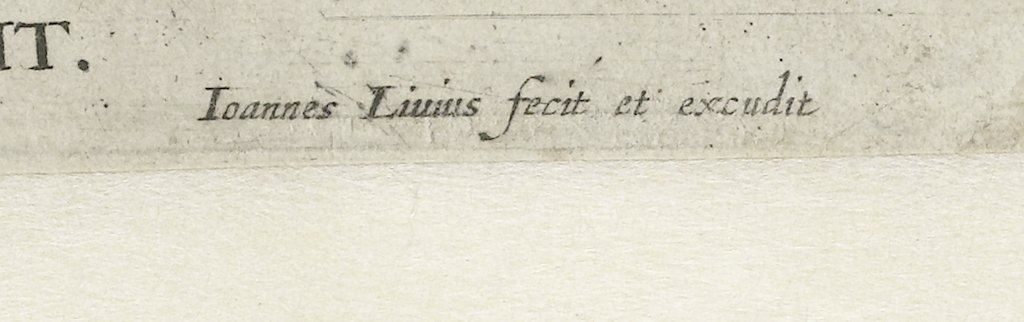 IT.
Ioannes Liuius fecit et excudit